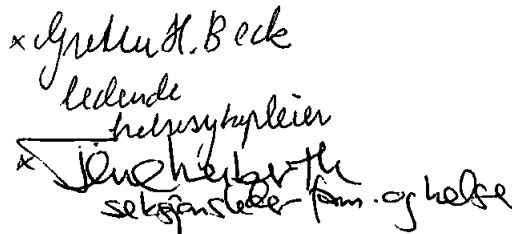 x Grethe H. Beck
ledende
helsesykepleier
x
seksjonsleder fam. og helse